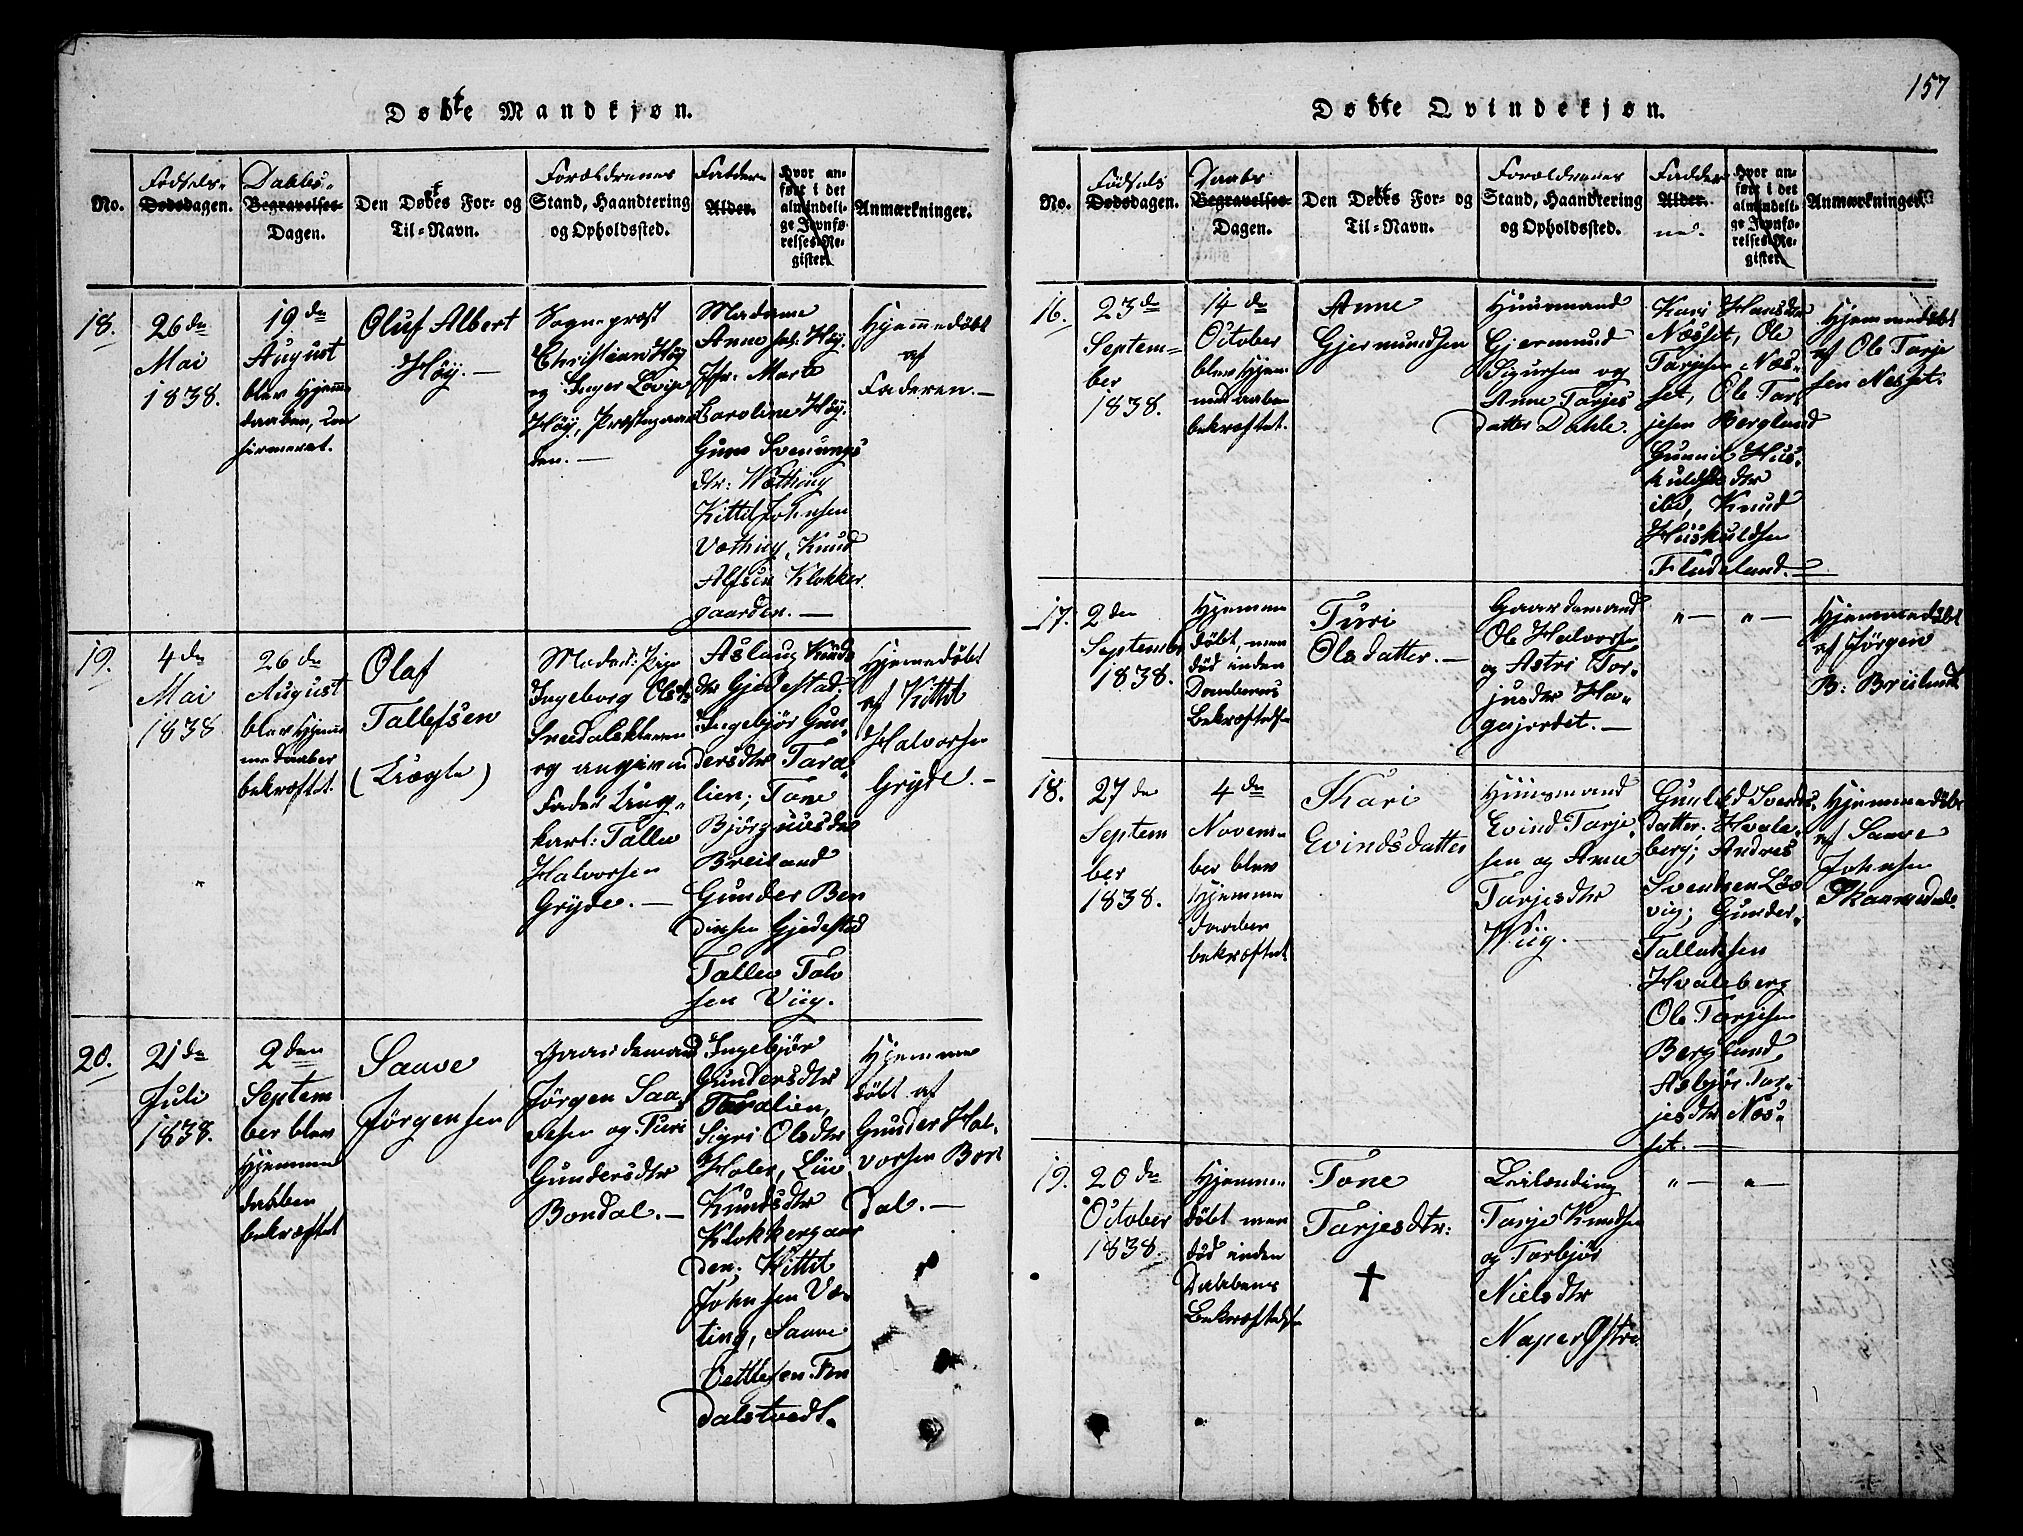 Døbte Mandkjøn.
No.
Fødsels-
Dødsdagen.
Daabs-
Begravelses-
Dagen.
Den Døbtes For- og
Til-Navn.
Forældrenes
Stand, Haandtering
og Opholdssted.
Faddere
Alder.
Hvor an-
ført i det
almindeli-
ge Jevnfø-
relses-Re-
gister.
Anmærkninger.
18.
26de
Mai
1838.
19de
August
blev Hjemme
daaben, con
firmeret.
Oluf Albert
Høy. —
Sogneprost
Christian Høy
og Inger Lovise
Høy, Præstegaar
den. —
Madame
Anne Høy.
Jfr. Marte
Caroline Høy.
Guro Svenungs
dtr: Wæthing
Kittil Johnsen
Væthing, Knud
Alfsen Klokker
gaarden. —
Hjemmedøbt
af
Faderen. —
19.
4de
Mai
1838
26de
August
blev Hjem
medaaben
bekræftet.
Olaf
Tallefsen
(Uægte)
Moder: Pige
Ingeborg Olsdtr
og angiven
Fader Ung-
karl: Tallev
Halvorsen
Gryde. —
Aslaug Knuds
dtr Gjedestad.
Ingebjør Gun-
dersdtr Tara-
lien; Tone
Bjørgnusdtr
Breiland
Gunder Ben
dixsen Gjedestad
Tallev Tolv
sen Viig.
Hjemedøbt
af Kittil
Halvorsen
Gryde. —
20.
21de
Juli
1838.
2den
Septem
ber blev
Hjemme
daaben
bekræftet
Saave
Jørgensen
Gaardemand
Jørgen Saa-
vesen og Turi
Gundersdtr
Bondal. —
Ingebjør
Gundersdtr
Taralien,
Sigri Olsdtr
Holen, Liv
Knudsdtr
Klokkergaar
den. Kittil
Johnsen Væ-
ting, Saave
Ten
dalstvedt.
Hjemme
døbt af
Gunder Hal-
vorsen Bon
dal. —
157
Døbte Qvindekjøn.
No.
Fødsels
Dødsdagen.
Daabs
Begravelses-
Dagen.
Den Døbtes For- og
Til-Navn.
Forældrenes
Stand, Haandtering
og Opholdssted.
Fadder
Alder.
ne.
Hvor an-
ført i det
almindeli-
ge Jevnfø-
relses-Re-
gister.
Anmærkninger.
16.
23de
Septem-
ber
1838.
14de
October
blev Hjem
medaaben
bekræftet.
Anne
Gjermundsen
Huusmand
Gjermund
Sigursen og
Anne Tarjes
datter Dahle.
Kari Hansdtr
Næsset, Ole
Tarjesen Næs-
set, Ole Tar-
jesen Bergland
Gunnil Hus-
kuldsdtr
ibd, Knud
Huskuldsen
Fludeland. —
Hjemmedøbt
af Ole Tarje
sen Nesset.
17.
2den
Septembr
1838.
Hjemme
døbt, men
død inden
Daabens
Bekræftelse
Turi
Olsdatter. —
Gaardemand
Ole Halvorsen
og Astri Tor-
jusdtr Ha-
gajordet. —
" — " —
Hjemmedøbt
af Jørgen
B: Breiland
18.
27de
Septem
ber
1838.
4de
Novem-
ber blev
Hjemme
daaben
bekræftet
Kari
Evindsdatter
Huusmand
Evind Tarje
sen og Anne
Tarjesdtr
Wiig. —
datter, Hvale-
berg; Andres
Svendsen Løs
vig; Gunder
Tallaksen
Hvaleberg
Ole Tarjesen
Bergland,
Asbjør Tar-
jesdtr Næs-
set. —
Hjemmedøbt
af Saave
Johnsen
19.
20de
October
1838.
Hjemme
døbt men
død inden
Daabens
Bekræftelse
Tone
Tarjesdtr:
†
Leilending
Tarje Knudsen
og Torbjør
Nielsdtr
Naper Østre
" — " —